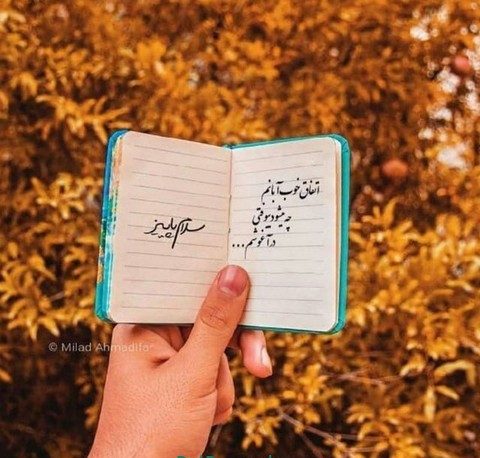 اتفاق خوب آبانم
چه میشود بیوفتی
در آغوشم...
سلام پاییز
© Milad Ahmadifa